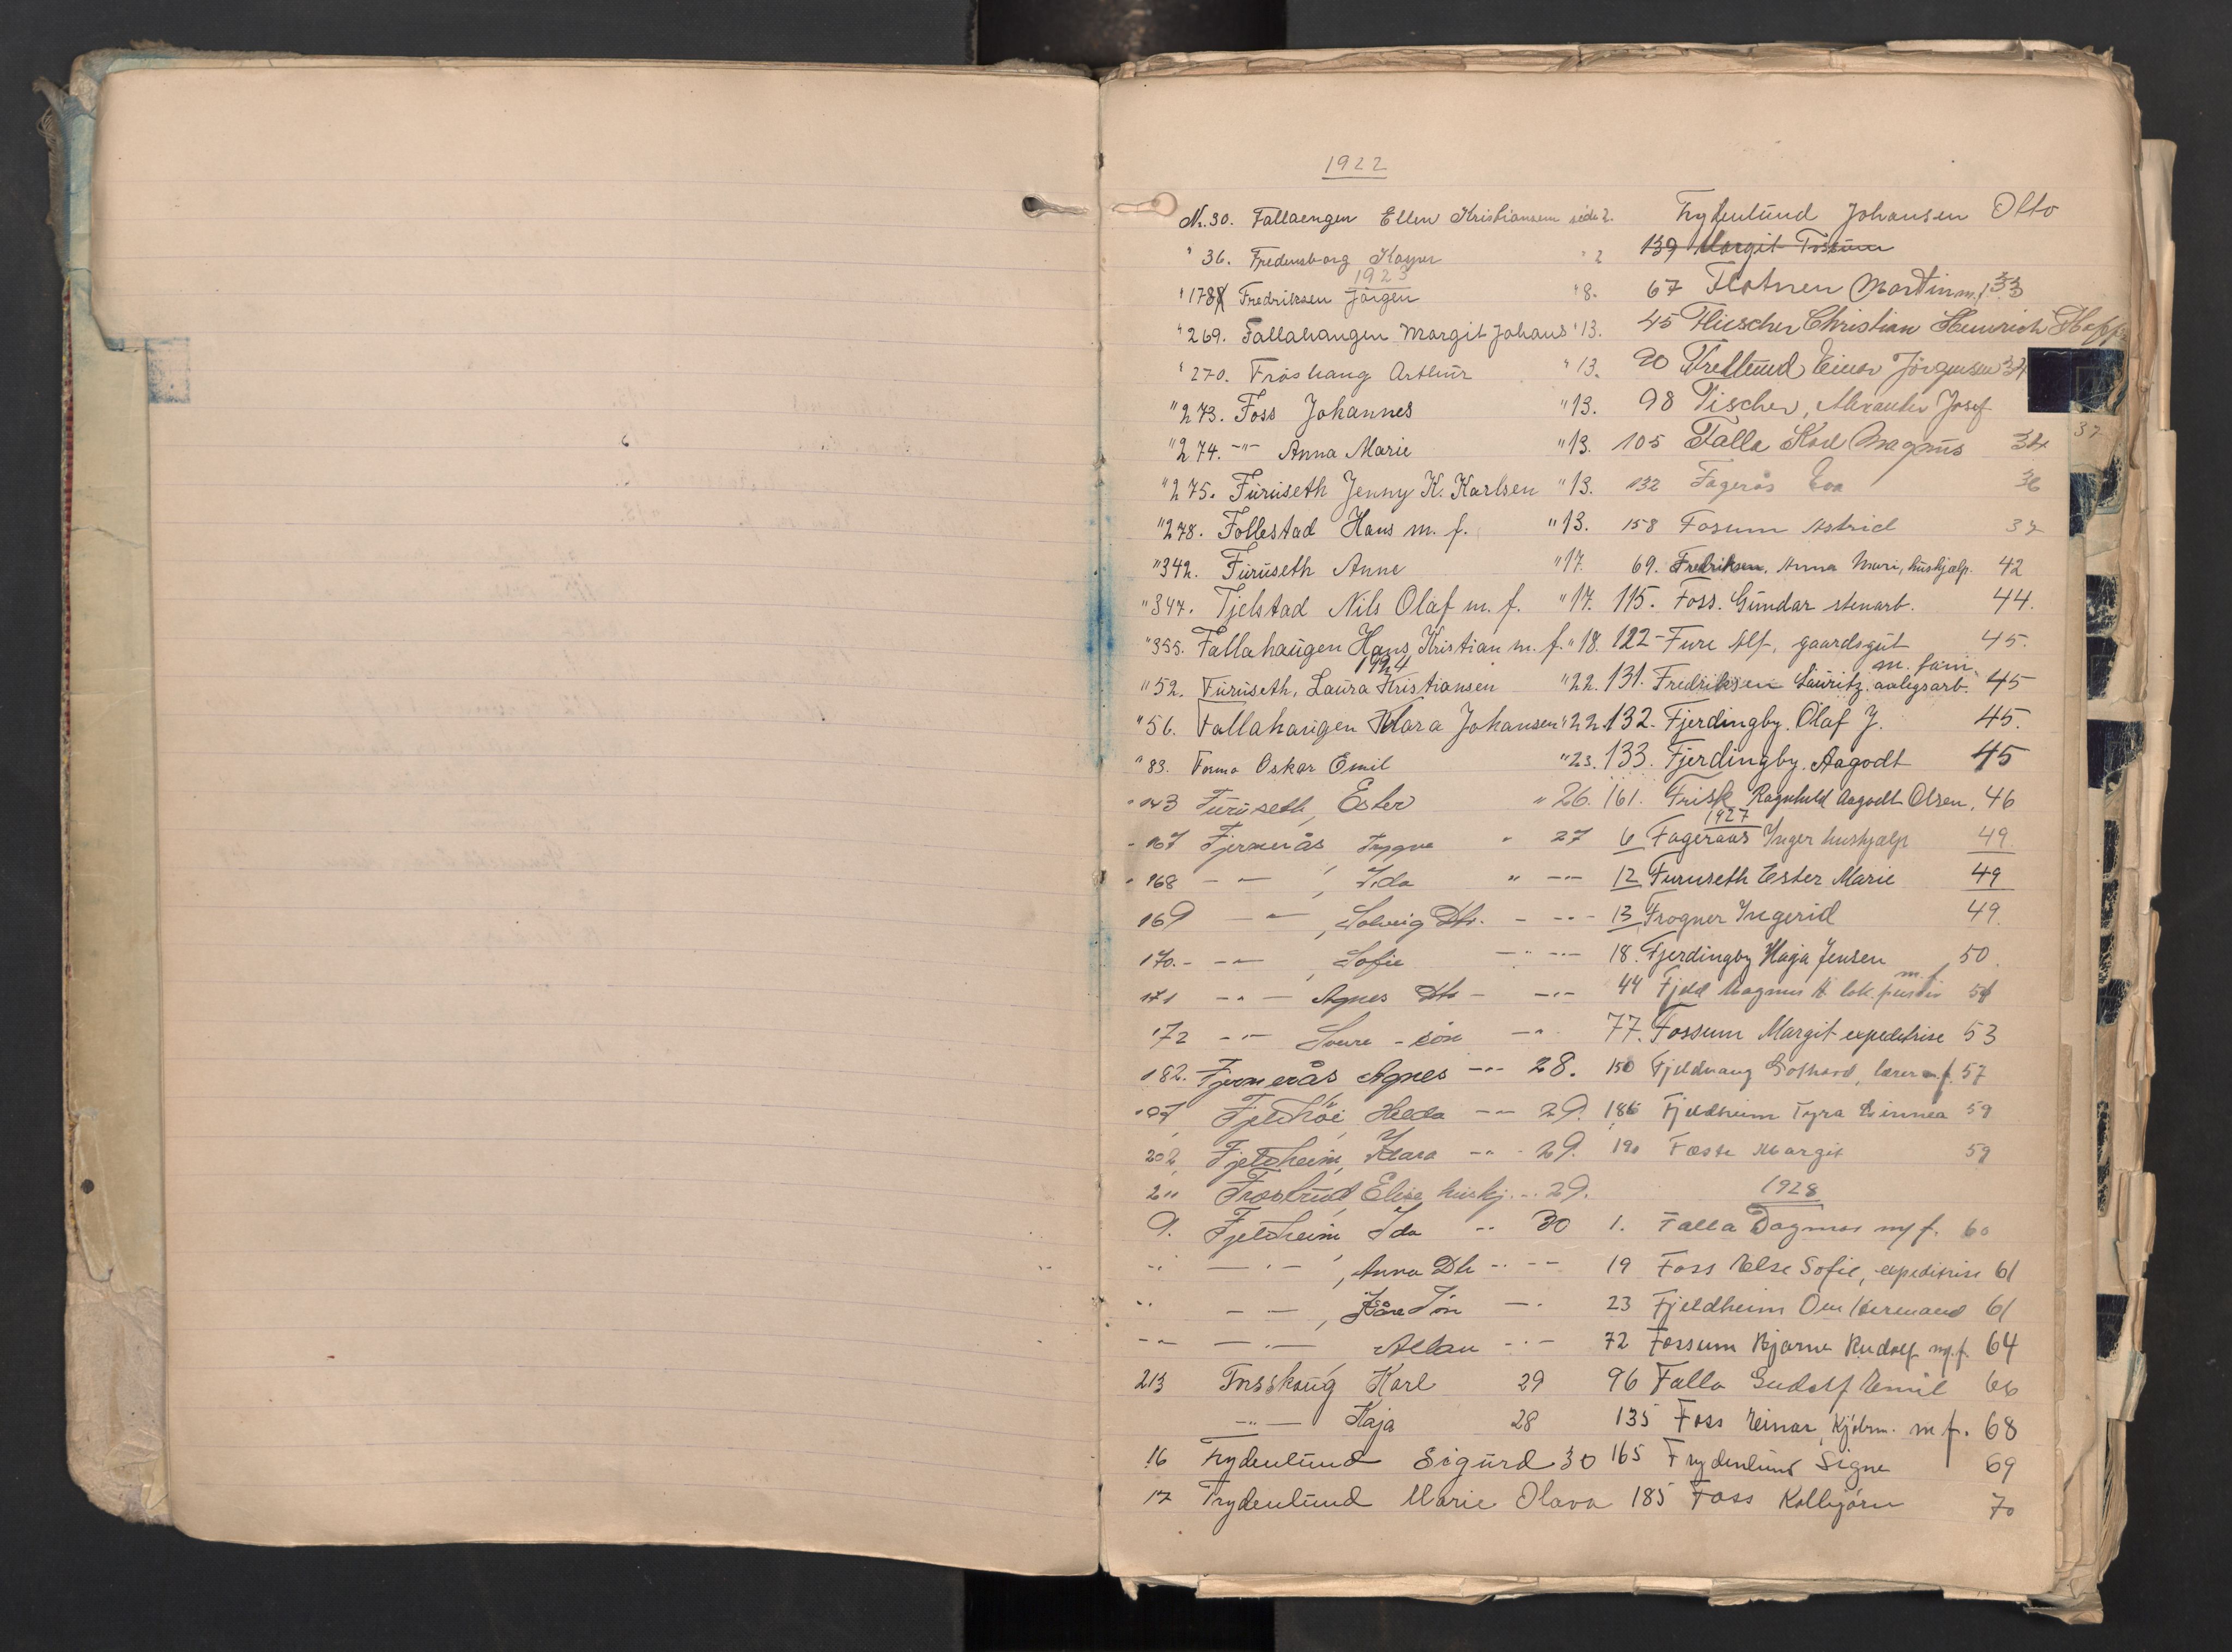 1922
Nr. 30. Fallaengen Ellen Kristiansen side 2.
" 36. Fredensborg Kasper " 2
1923
" 178 Fredriksen Jörgen " 8.
" 269. Fallahaugen Margit Johans " 13.
" 270. Fröshaug Arthur " 13.
" 273. Foss Johannes " 13.
" 274. -"- Anna Marie " 13.
" 275. Furuseth Jenny K. Karlsen " 13.
" 278. Follestad Hans m. f. " 13.
" 342. Furuseth Anne " 17.
" 347. Fjelstad Nils Olaf m. f. " 17.
" 355. Fallahaugen Hans Kristian m. f. " 18.
1924
" 52. Furuseth, Laura Kristiansen " 22.
" 56. Fallahaugen Klara Johansen " 22.
" 83. Formo Oskar Emil " 23.
" 143 Furuseth, Ester " 26.
" 167 Fjernerås Trygve " 27
" 168 -"- , Ida " -"-
169 -"- , Solveig Dtr. - -"-
170. -"- , Sofie -"-
171 -"- Agnes Dtr - -"-
172 -"- Sverre - sön -"-
182. Fjernerås Agnes -"- 28.
Fjeldhöi, Hilda -"- 29.
202 Fjeldheim, Klara -"- 29.
211 Frostrud, Elise huskj. -"- 29.
9. Fjeldheim Ida -"- 30
" -"- , Anna Dtr -"-
" -"- , Kåre Sön -"-
-"- -"- Allan -"-
213 Karl 29
-"- Kaja 28
16 Frydenlund Sigurd 30
17 Frydenlund Marie Olava
Frydenlund Johansen Otto
139 Margit Fossum
67 Flotnen Martin m. f. 33
45 Christian Heinrich
90 Einar Jörgensen 34
98 Fischer, Alexander Josef
37
105 Falla Karl Magnus 34
132 Fagerås Eva 36
158 Fosum Astrid 37
69. Fredriksen, Anna Mari, hushjælp. 42
115. Foss. Gundar stenarb. 44.
122 - Fure Alf, gaardsgut 45.
131. Fredriksen Lauritz. anlegsarb. m. fam. 45
132. Fjerdingby. Olaf J. 45.
133. Fjerdingby. Aagodt 45
161. Frisk Ragnhild Aagodt Olsen, 46
1927
6 Fageraas Inger hushjælp 49
12 Furuseth Ester Marie 49
13 Frogner Ingerid 49.
18. Fjerdingby Haga Jensen 50.
44 Fjeld Magnus H lok. m. f. 51
77. Fossum Margit expeditrise 53
150 Fjeldvang Gothard, lærer m. f. 57
186 Fjeldheim Tyra Linnea 59
190 Fosse Margit 59
1928
1. Falla Dagmar m/f. 60
19 Foss Else Sofie, expeditrise 61
23 Fjeldheim Ole Hermand 61
72 Fossum Bjarne Rudolf m/f. 64
96 Falla Gudolf Emil 66
135 Foss Einar, Kjöbm. m f. 68
165 Frydenlund Signe 69
185 Foss Kolbjörn 70